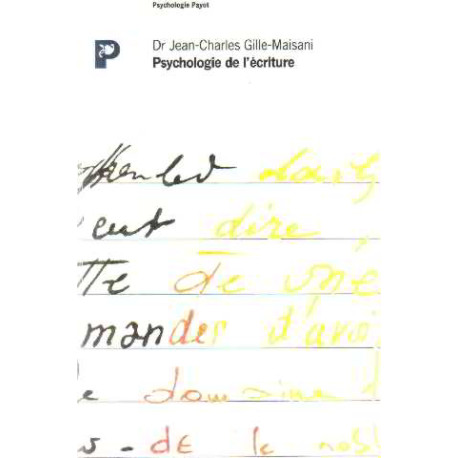 Psychologie Payot
P
Dr Jean-Charles Gille-Maisani
Psychologie de l'écriture
dire,
de
mander d'avoi
e domaine
de le